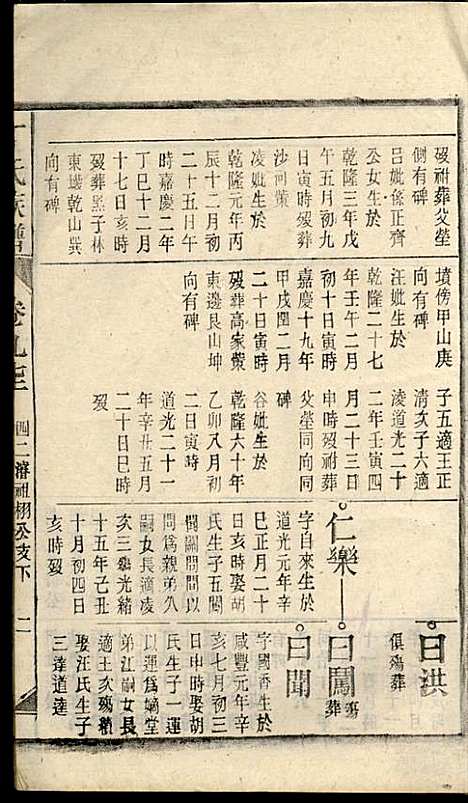 歿祔葬父塋
側有碑
呂妣係正齊
公女生於
乾隆三年戊
午五月初九
日寅時歿葬
沙河䇿
凌妣生於
乾隆元年丙
辰十二月初
二十五日午
時嘉慶二年
丁巳十二月
十七日亥時
歿葬黑子林
東塅乾山巽
向有碑
墳傍甲山庚
向有碑
汪妣生於
乾隆二十七
年壬午二月
初十日寅時
嘉慶十九年
甲戌閏二月
二十日寅時
歿葬高家
東邊艮山坤
向有碑
子五適王正
清亥子六適
淩道光二十
二年壬寅四
月二十三日
申時歿祔葬
父塋同向同
碑
谷妣生於
乾隆六十年
乙卯八月初
二日寅時
道光二十一
年辛丑五月
二十日巳時
歿
仁樂
字自來生於
道光元年辛
巳正月二十
日亥時娶胡
氏生子五
間以
問爲親弟久
嗣女長適凌
亥三殤光緒
十五年己丑
十月初四日
亥時歿
曰洪
俱殤葬
曰鬭
殤葬
曰聞
字國香生於
咸豐元年辛
亥七月初三
日申時娶胡
氏生子一運
以運爲嫡堂
弟江嗣女長
適王次殤續
娶汪氏生子
三達道達
氏族譜
卷九
四二濬祖栩公支下
二